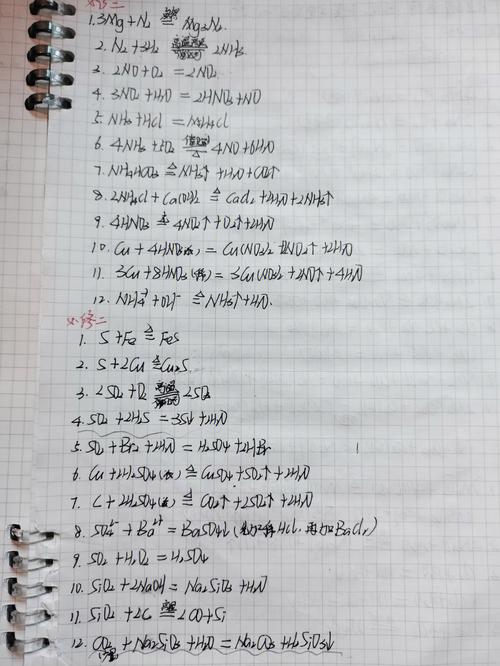 必修二
1. 3Mg + N₂ 点燃= Mg₃N₂.
2. N₂ + 3H₂ 高温高压/催化剂 2NH₃
3. 2NO + O₂ = 2NO₂
4. 3NO₂ + H₂O = 2HNO₃ + NO
5. NH₃ + HCl = NH₄Cl
6. 4NH₃ + 5O₂ 催化剂/△ 4NO + 6H₂O
7. NH₄HCO₃ △= NH₃↑ + H₂O + CO₂↑
8. 2NH₄Cl + Ca(OH)₂ △= CaCl₂ + 2H₂O + 2NH₃↑
9. 4HNO₃ △= 4NO₂↑ + O₂↑ + 2H₂O
10. Cu + 4HNO₃(浓) = Cu(NO₃)₂ + 2NO₂↑ + 2H₂O
11. 3Cu + 8HNO₃(稀) = 3Cu(NO₃)₂ + 2NO↑ + 4H₂O
12. NH₄⁺ + OH⁻ △= NH₃↑ + H₂O.
必修二
1. S + Fe △= FeS
2. S + 2Cu △= Cu₂S.
3. 2SO₂ + O₂ 高温/催化剂 2SO₃
4. SO₂ + 2H₂S = 3S↓ + 2H₂O
5. SO₂ + Br₂ + 2H₂O = H₂SO₄ + 2HBr
6. Cu + 2H₂SO₄(浓) △= CuSO₄ + SO₂↑ + 2H₂O
7. C + 2H₂SO₄(浓) △= CO₂↑ + 2SO₂↑ + 2H₂O
8. SO₄²⁻ + Ba²⁺ = BaSO₄↓ (先加稀HCl, 再加BaCl₂)
9. SO₂ + H₂O₂ = H₂SO₄
10. SiO₂ + 2NaOH = Na₂SiO₃ + H₂O
11. SiO₂ + 2C 高温= 2CO + Si
12. CO₂ + Na₂SiO₃ + H₂O = Na₂CO₃ + H₂SiO₃↓